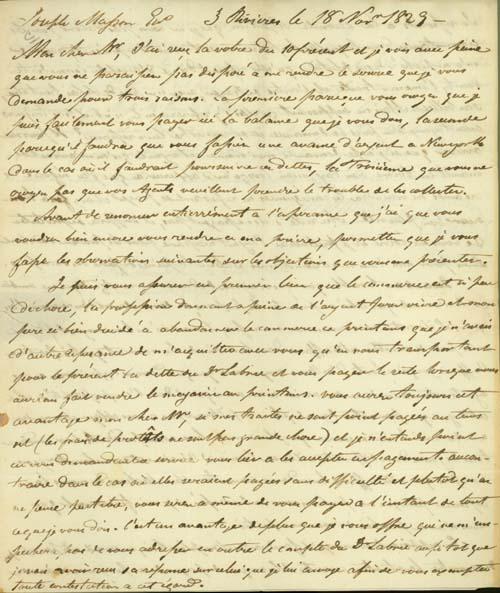 Joseph Masson Ecr 3 Rivieres le 18 Novr 1829 –
Mon cher Mr, J'ai reçu la votre du 10 présent et je vois avec peine
que vous ne paraissiez pas disposé a me rendre le service que je vous
demande pour trois raisons. La première parceque vous croyez que je
puis facilement vous payer ici la balance que je vous dois, la seconde
parcequ'il faudra que vous fassiez une avance d'argent a Newyork
dans le cas où il faudrait poursuivre ces dettes, la troisième que vous ne
croyez pas que vos Agents veuillent prendre le trouble de les collecter.
Avant de renoncer entièrement à l'espérance que j'ai que vous
voudrez bien encore vous rendre a ma prière, permettez que je vous
fasse les observations suivantes sur les objections que vous me présentez.
Je puis vous assurer en premier lieu que le commerce est si peu
de chose, la profession donnant a peine de l'argent pour vivre et mon
pere si bien décidé a abandonner le commerce ce printems que je n'avais
d'autre esperance de m'acquitter avec vous qu'en vous transportant
pour le présent la dette de Dr Labrie et vous payer le reste lorsque nous
aurions fait vendre le magasin au printems. vous aurez toujours cet
avantage mon cher Mr, si mes traites ne sont point payés au tems
dit (les frais de protêts ne sont pas grande chose) et je n'entends point
en vous demandant ce service vous lier a les accepter en payement. aucon-
traire dans le cas où elles seraient payées sans difficulté et plutot qu'on
ne pense peutetre, vous serez a même de vous payer a l'instant de tout
ce que je vous dois. C'est un avantage de plus que je vous offre qui ne m'em-
pechera pas de vous adresser en outre le compte du Dr Labrie aussitot que
je vais avoir reçu sa réponse sur celui que je lui envoye afin de vous exempter
toute contestation a cet égard.